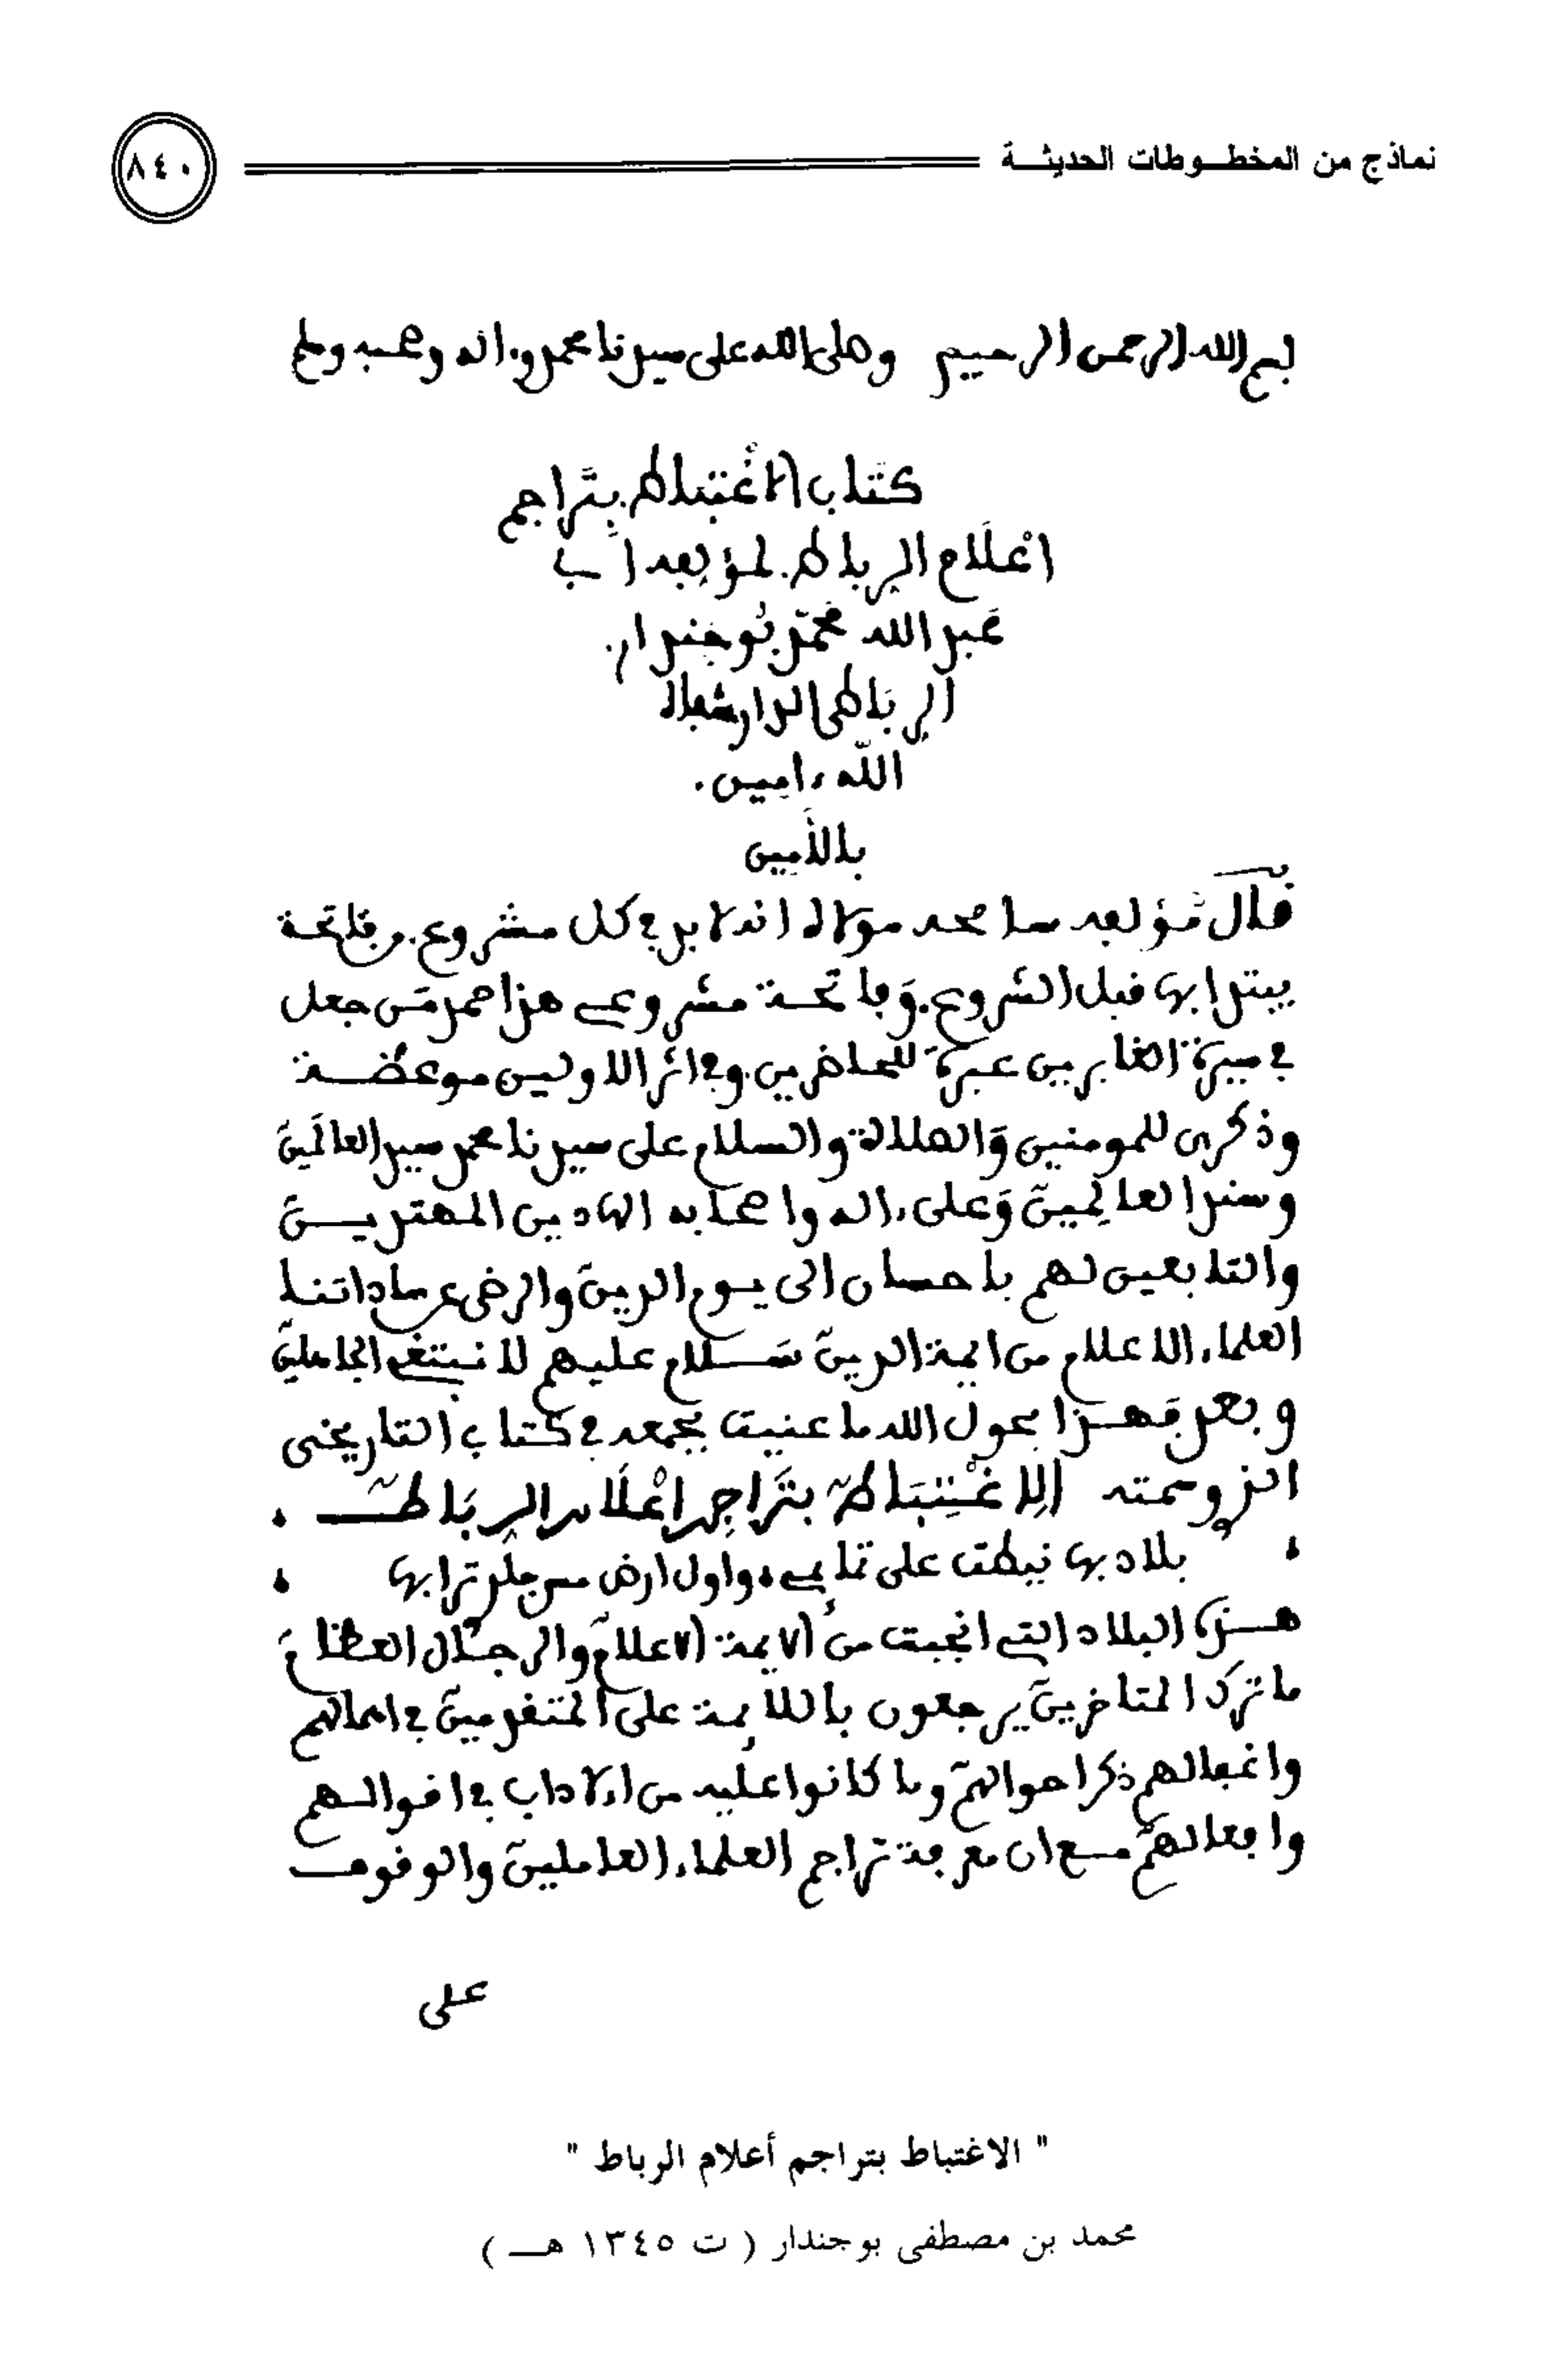 نماذج من المخطوطات الحديثة
٨٤٠
بسم الله الرحمن الرحيم وصلى الله على سيدنا محمد وءاله وصحبه وسلم
كتاب الاغتباط بتراجم
اعلام الرباط لمؤلفه ابي
عبد الله محمد بوجندار
الرباطي الدار شفاه
الله ءامين.
باللأمين
قال مؤلفه سامحه مولاه انه لا بد في كل مشروع من فاتحة
يبتدا بها قبل الشروع. وفاتحة مشروعي هذا حمد من جعل
في سيرة الغابرين عبرة للحاضرين. وفي اثر الاولين موعظة
وذكرى للمومنين والصلاة والسلام على سيدنا محمد سيد العالمين
وسند العالمين وعلى ءاله واصحابه الهادين المهتدين
والتابعين لهم باحسان الى يوم الدين والرضى عن ساداتنا
العلماء الاعلام من ايمة الدين سلام عليهم لا نبتغي الجاهلين
وبعد فهذا بحول الله ما عنيت بجمعه في كتاب التاريخي
الذي وسمته الاغتباط بتراجم اعلام الرباط.
بلاد بها نيطت علي تمايمي، واول ارض مس جلدي ترابها
هذه البلاد التي انجبت من الايمة الاعلام والرجال العظام
ما ترك المتاخرين يرجعون باللايمة على المتقدمين في اهمالهم
واغفالهم ذكر احوالهم وما كانوا عليه من الاداب في اقوالهم
وافعالهم مع ان معرفة تراجم العلماء العاملين والوقوف
على
" الاغتباط بتراجم أعلام الرباط "
محمد بن مصطفى بوجندار ( ت ١٣٤٥ هـ )